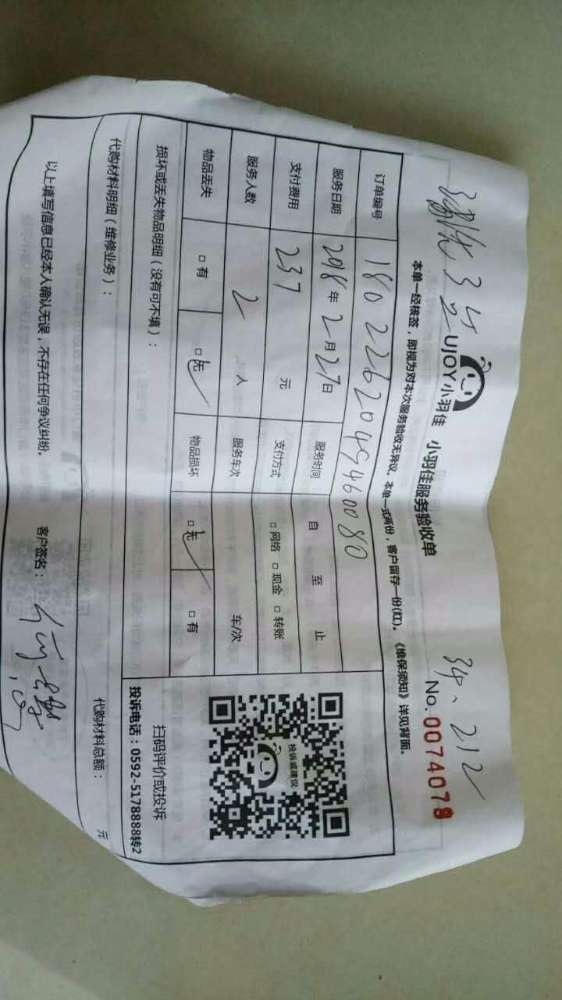 34、212
UJOY小羽佳 小羽佳服务验收单
No.0074078
本单一经核签，即视为对本次服务验收无异议。本单一式两份，客户留存一份(红)。《维保须知》详见背面。
订单编号 1802262045460080
服务日期 2018年2月27日 服务时间 自 至 止
支付费用 237 元 支付方式 □网络 □现金 □转账
服务人数 2 人 服务车次 车/次
物品丢失 □有 □无 物品损坏 □无 □有
扫码评价或投诉
投诉电话：0592-5178888转2
投诉或建议
损坏或丢失物品明细（没有可不填）：
代购材料明细（维修业务）： 代购材料总额： 元
以上填写信息已经本人确认无误，不存在任何争议纠纷。 客户签名：